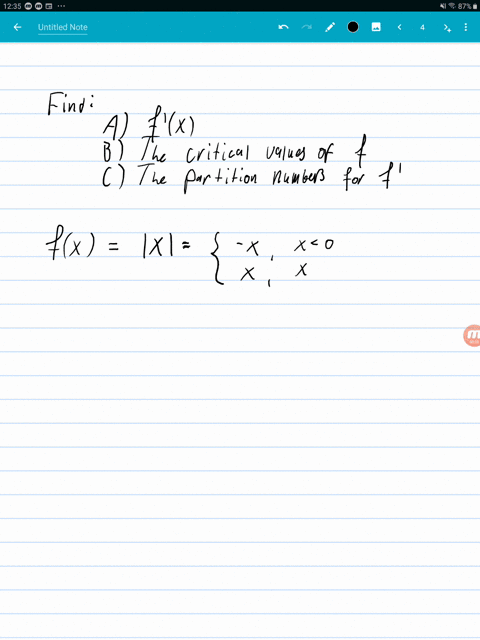 12:35
87%
Untitled Note
4
Find:
A) f'(x)
B) The critical values of f
C) The partition numbers for f'
f(x) = |x| = { -x, x < 0
x, x